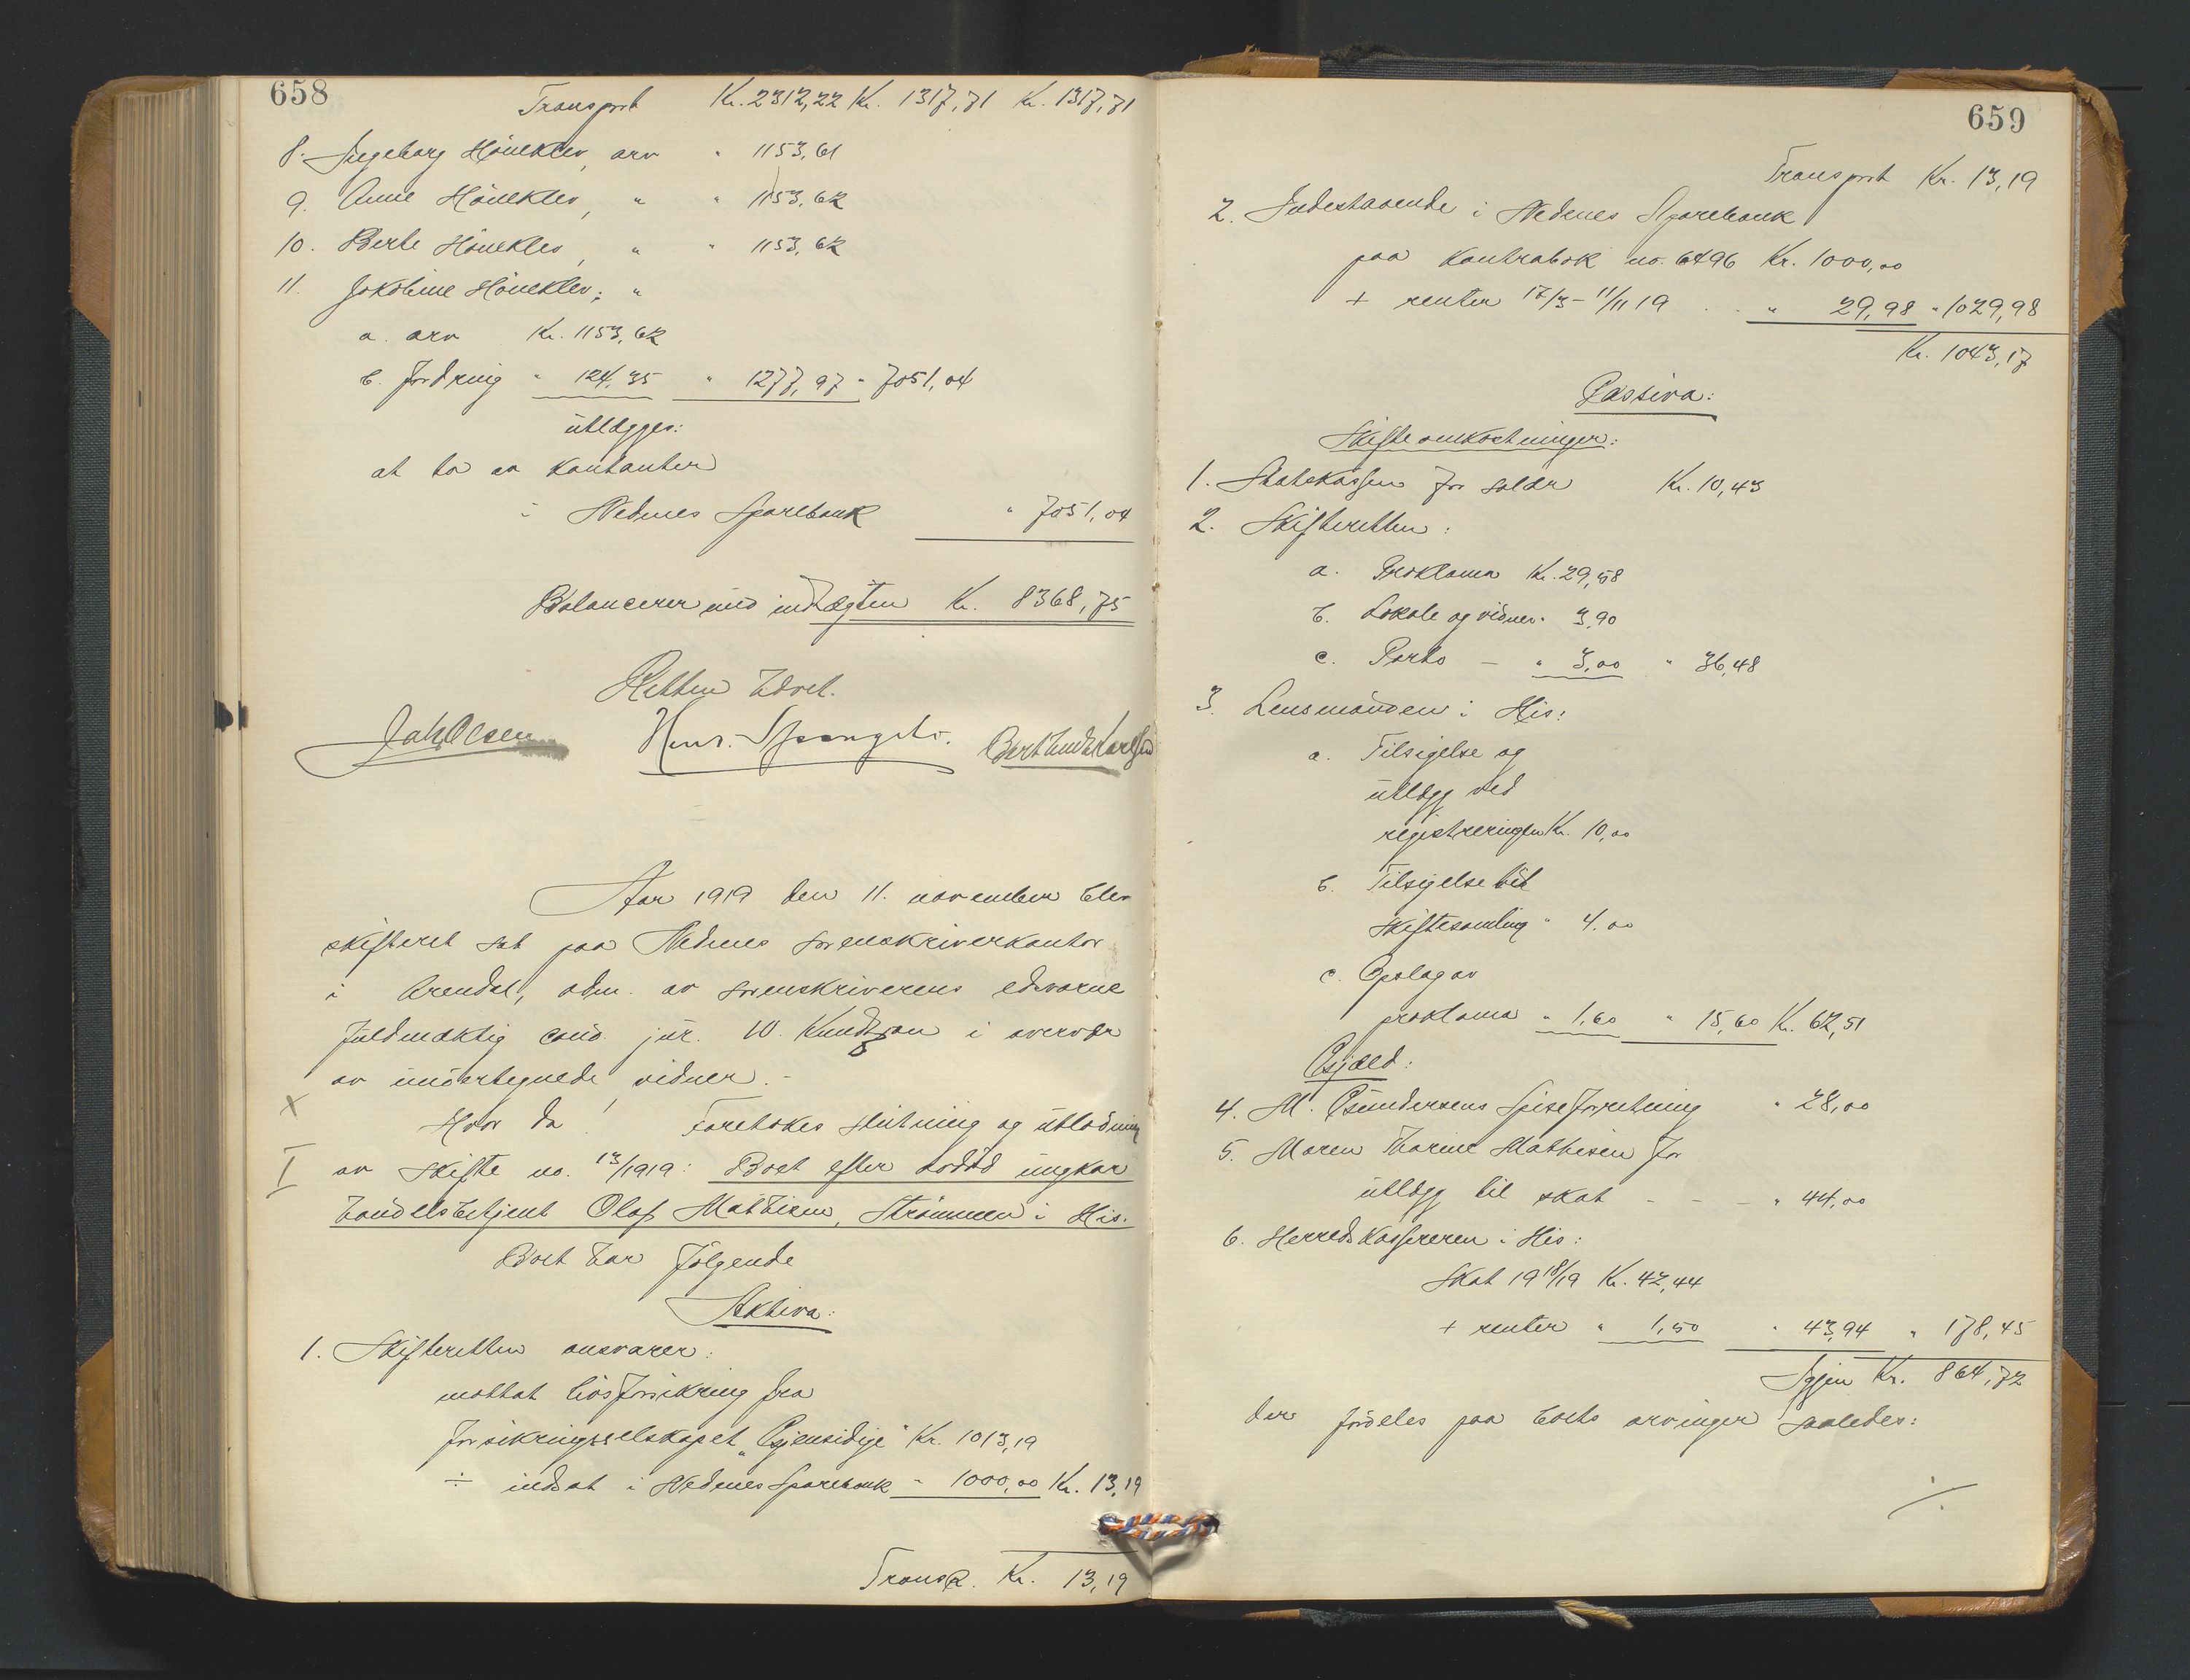 658
Transport Kr. 2312,22 Kr. 1317,71 Kr. 1317,71
8. Ingeborg Hòueklev, arv " 1153,61
9. Anne Hòueklev, " " 1153,62
10. Berte Hòueklev, " " 1153,62
11. Jokobine Hòueklev; "
a. arv Kr. 1153,62
b. fordring " 124,35 " 1277,97 " 7051,04
utlægges:
at ta av kontanter
i Nedenes Sparebank " 7051,04
Balancerer med indtægten Kr. 8368,75
Retten hævet.
Jak Olsen Henr. Spangelo. Berthinde Karlsen
Aar 1919 den 11. november blev
skifteret sat paa Nedenes sorenskriverkontor
i Arendal, adm. av sorenskriverens edsvorne
fuldmæktig cand. jur. W. Knudtzon i overvær
av undertegnede vidner. -
x Hvor da! Foretokes slutning og utlodning
I av skifte no. 13/1919: Boet efter avdød ungkar
handelsbetjent Olaf Mathisen, Strømmen i His.
Boet har følgende
Aktiva:
1. Skifteretten ansvarer:
mottat livsforsikring fra
forsikringsselskapet „Gjensidige" Kr. 1013,19
÷ indsat i Nedenes Sparebank " 1000,00 Kr. 13,19
Transp. Kr. 13,19
659
Transport Kr. 13,19
2. Indestaaende i Nedenes Sparebank
paa kontrabok no. 6496 Kr. 1000,00
+ renter 17/3 - 11/11 19 . . " 29,98 " 1029,98
Kr. 1043,17
Passiva:
Skifteomkostninger:
1. Statskassen for soldr Kr. 10,43
2. Skifteretten:
a. Proklama Kr. 29,58
b. Lokale og vidner " 3,90
c. Porto - " 3,00 " 36,48
3. Lensmanden i His:
a. Tilsigelse og
utlægg ved
registreringen Kr. 10,00
b. Tilsigelse til
skiftesamling " 4.00
c. Opslag av
proklama " 1,60 " 15,60 Kr. 62,51
Gjæld:
4. M. Gundersens Spiseforretning " 28,00
5. Maren Karine Mathisen for
utlægg til skat - - - " 44,00
6. Herredskassereren i His:
Skat 1918/19 Kr. 42,44
+ renter " 1,50 " 43,94 " 178,45
Igjen Kr. 864,72
der fordeles paa boets arvinger saaledes:
./.